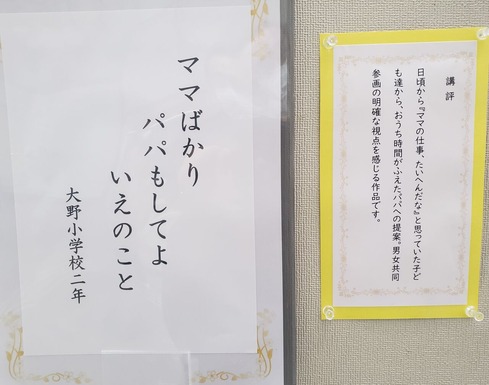 ママばかり
パパもしてよ
いえのこと
大野小学校二年
講評
日頃から『ママの仕事、たいへんだな』と思っていた子ど
も達から、おうち時間がふえたパパへの提案。男女共同
参画の明確な視点を感じる作品です。